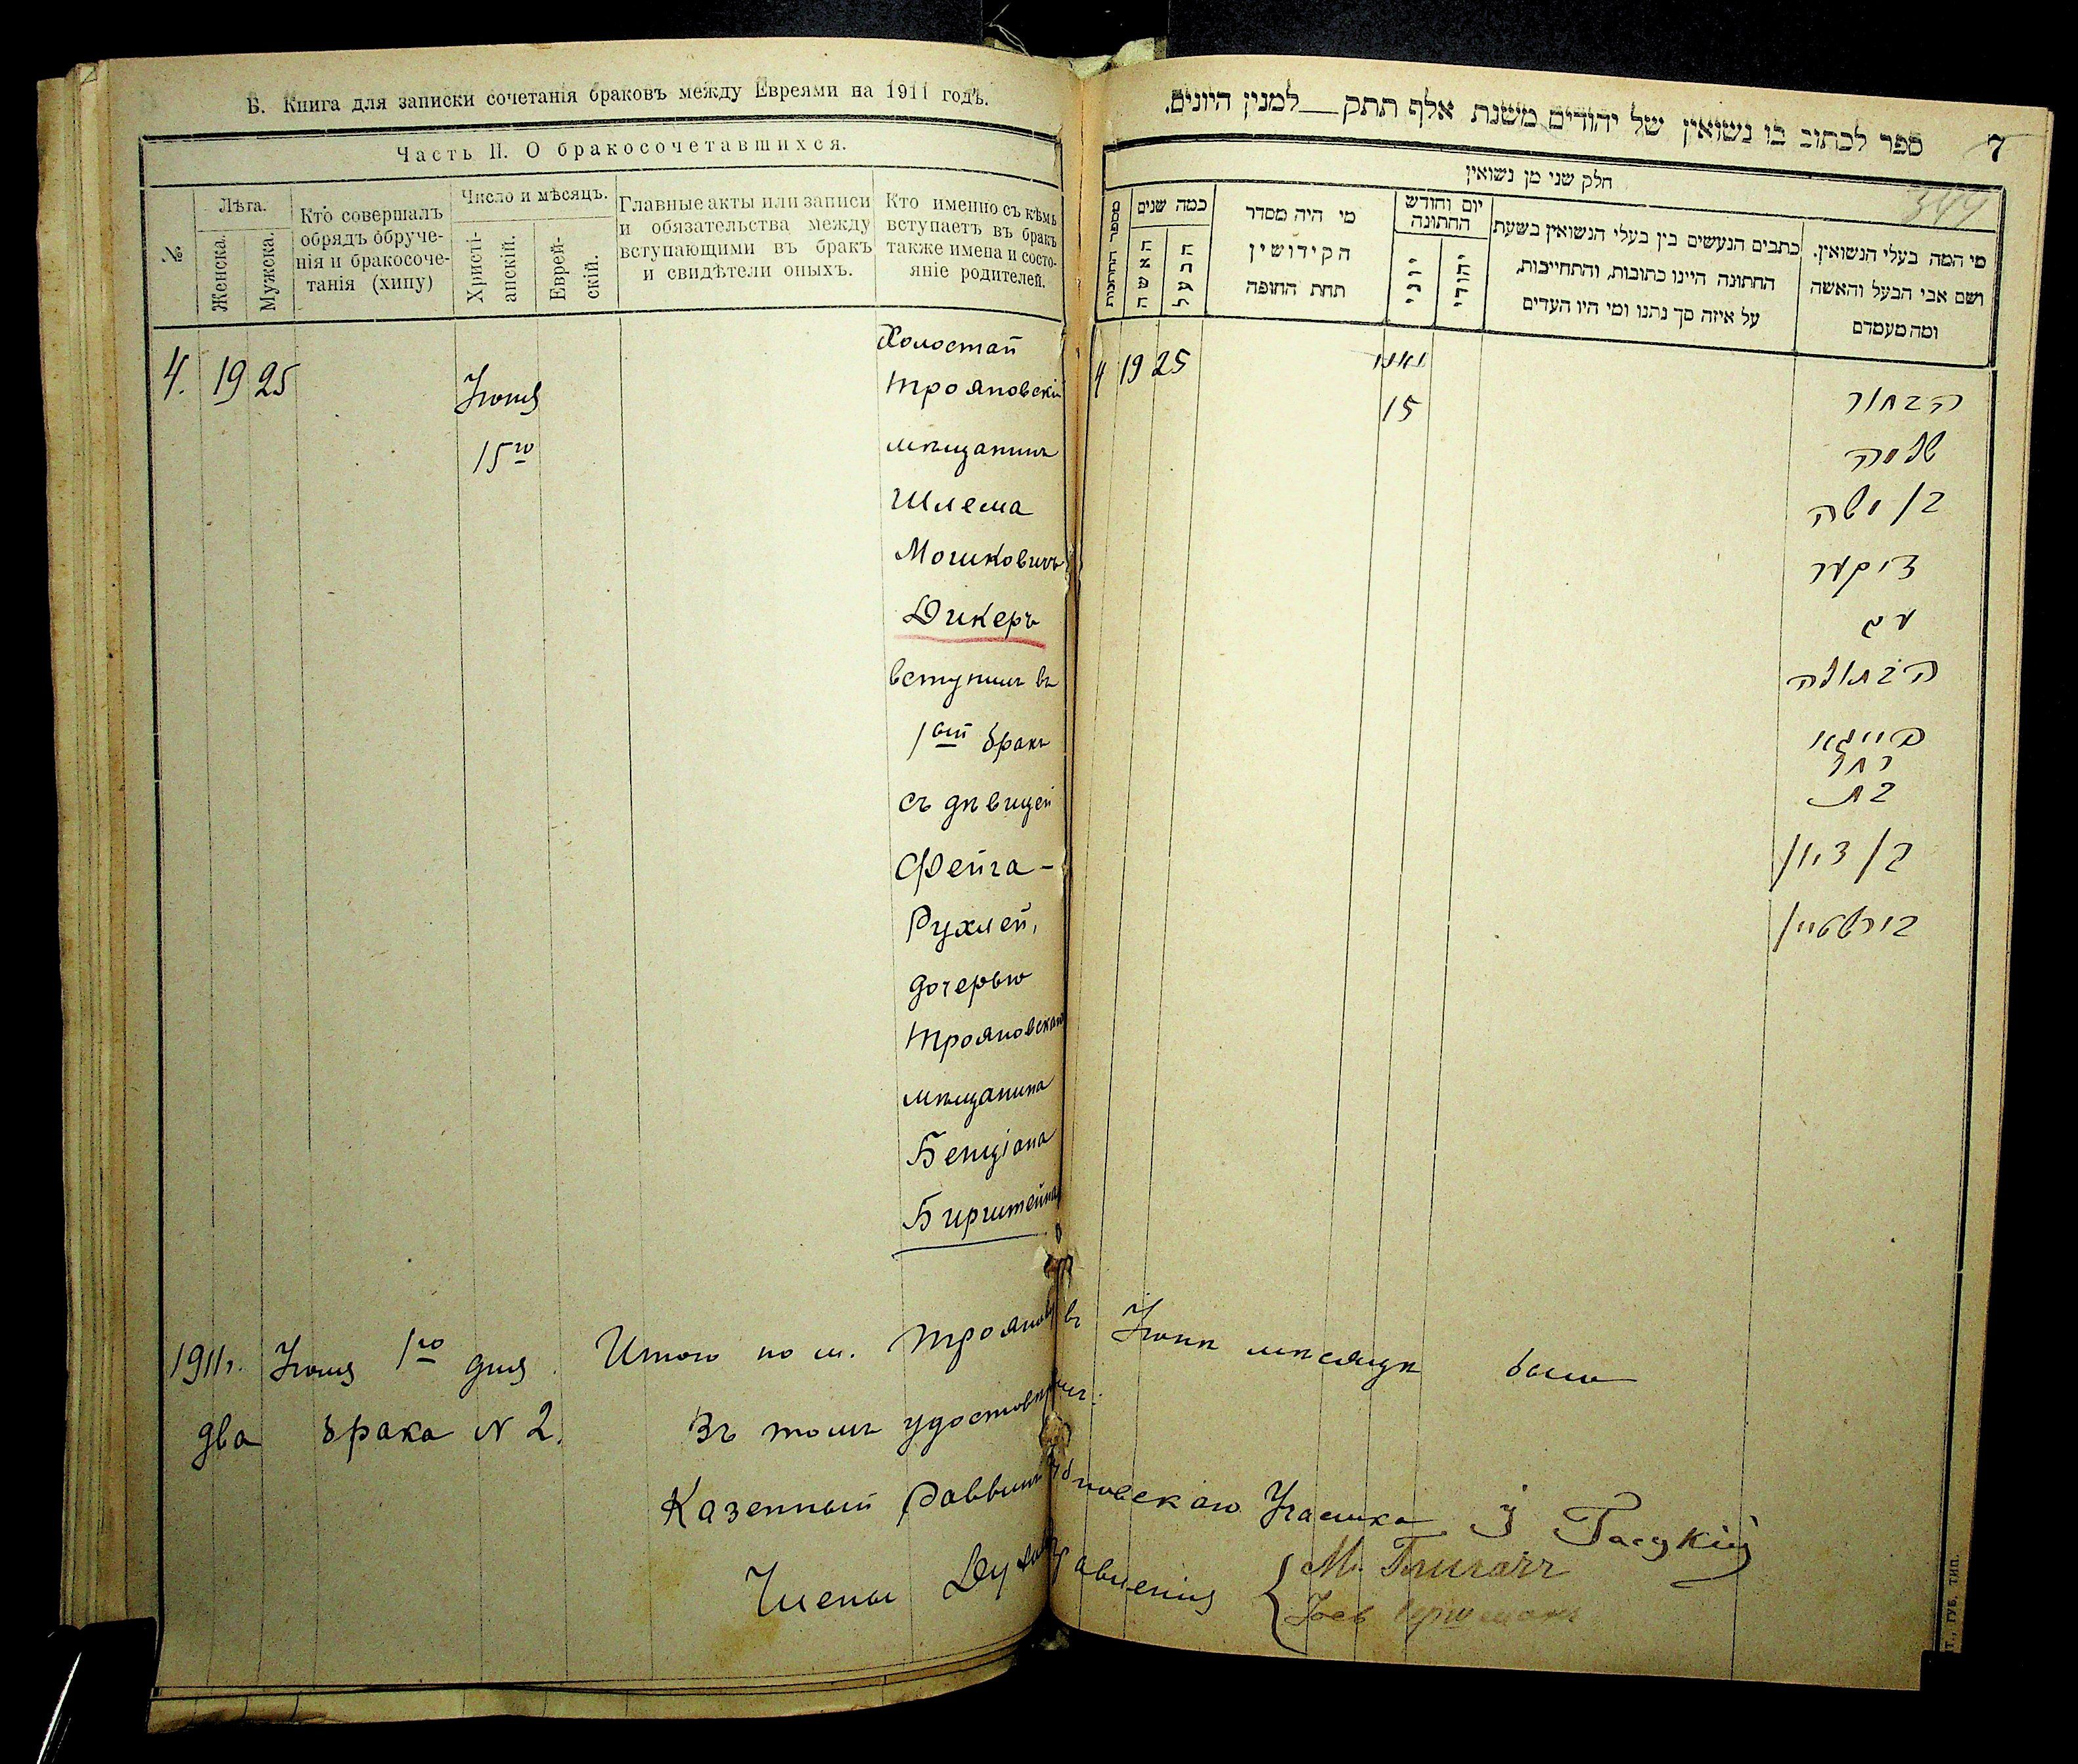 Б. Книга для записки сочетанія браковъ между Евреями на 1911 годъ.
Часть II. О бракосочетавшихся.
№
Лѣта.
Женска.
Мужска.
Кто совершалъ
обрядъ обруче-
нія и бракосоче-
танія (хипу)
Число и мѣсяцъ.
Христі-
анскій.
Еврей-
скій.
Главные акты или записи
и обязательства между
вступающими въ бракъ
и свидѣтели оныхъ.
Кто именно съ кѣмъ
вступаетъ въ бракъ
также имена и состо-
яніе родителей.
4. 19 25
15го
Холостай
Трояновскій
мѣщанинъ
Шлема
Мошковичъ
Дикеръ
вступилъ въ
1вый бракъ
съ дѣвицей
Фейга-
Рухлей,
дочерью
Трояновскаго
мѣщанина
Бенціана
Бирштейна
ספר לכתוב בו נשואין של יהודים משנת אלף תתק__למנין היונים.
7
344
חלק שני מן נשואין
מספר החתונות
כמה שנים
האשה
הבעל
מי היה מסדר
הקידושין
תחת החופה
יום וחודש
החתונה
יוני
יהודי
כתבים הנעשים בין בעלי הנשואין בשעת
החתונה היינו כתובות, והתחייבות,
על איזה סך נתנו ומי היו העדים
מי המה בעלי הנשואין.
ושם אבי הבעל והאשה
ומה מעמדם
4 19 25
יוני
15
הבחור
שלמה
בן משה
דיקער
עם
הבתולה
פייגא
רחל
בת
בן ציון
בירשטיין
1911г. 1го дня. Итого по м. Троянову въ мѣсяцѣ было
два брака № 2. Въ томъ удостовѣряемъ:
Казенный Раввинъ Трояновскаго Участка
Члены Дух. Правленія
Т., ГУБ. ТИП.